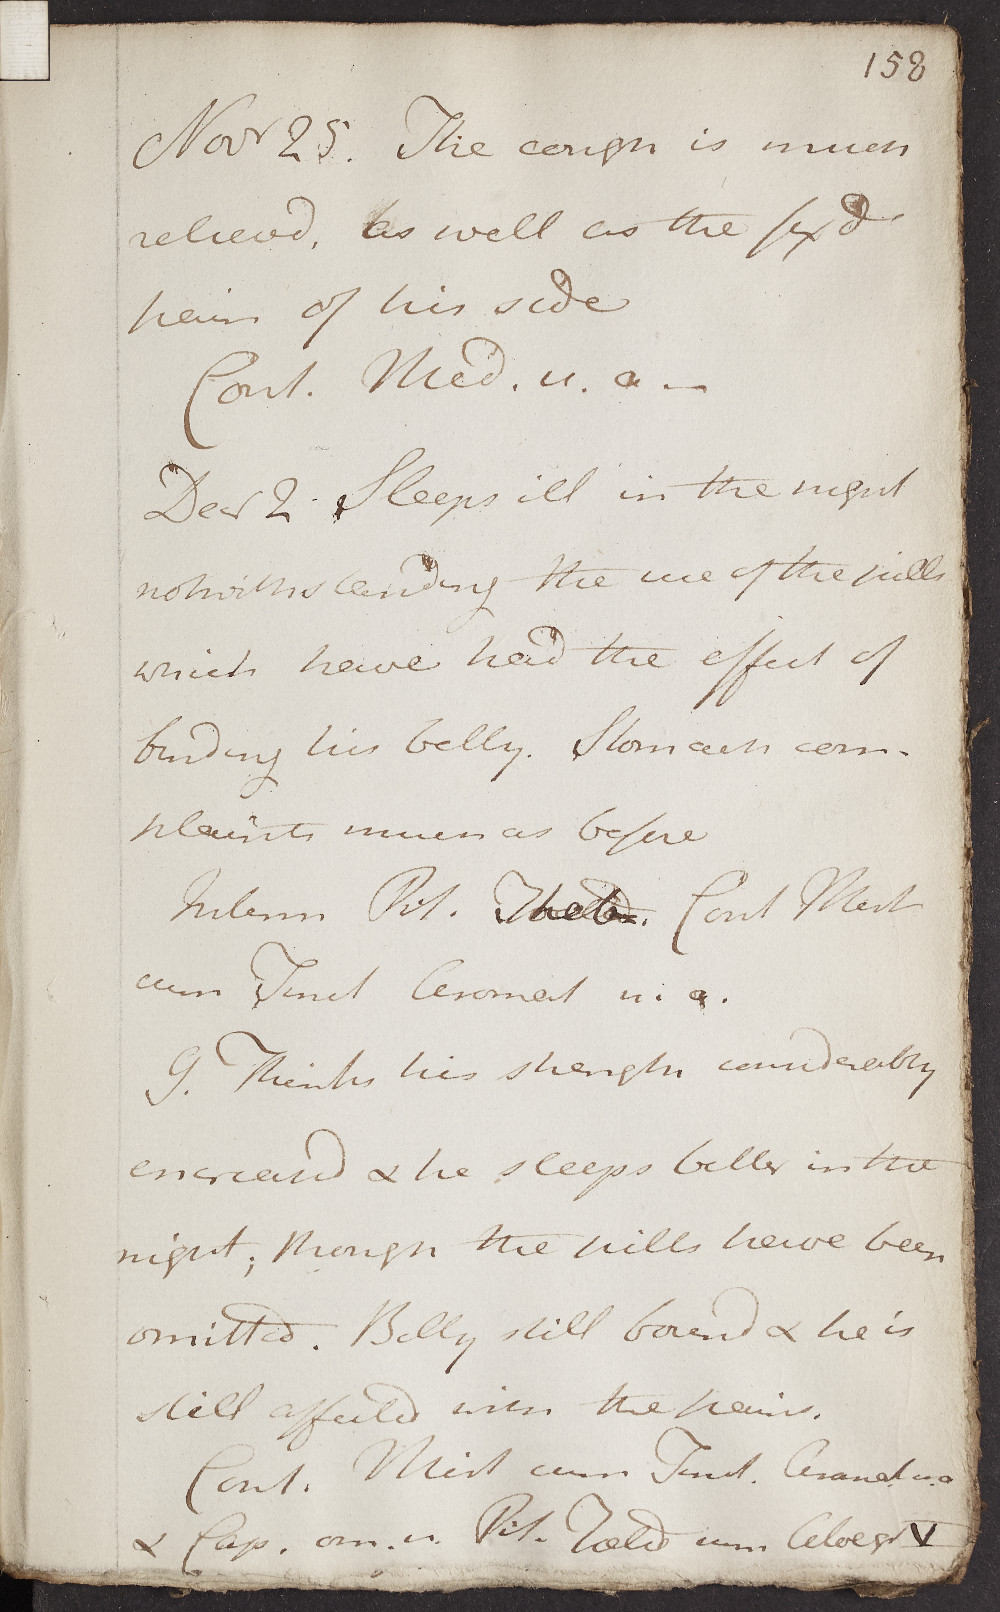 158
Novr 25. The cough is much
relievd, as well as the fixd
pain of his side
Cont. Med. u. a
Decr 2. Sleeps ill in the night
notwithstanding the use of the pills
which have had the effect of
binding his belly. Stomach com-
plaints much as before
Pil. Cont Mist
cum Tinct Aromat u. a.
9. Thinks his strength considerably
encreasd & he sleeps better in the
night; though the pills have been
omitted. Belly still bound & he is
still affected with the pains.
Cont. Mist cum Tinct. Aromat. u.a
& Cap. om. n. Pil. cum Aloes gr V